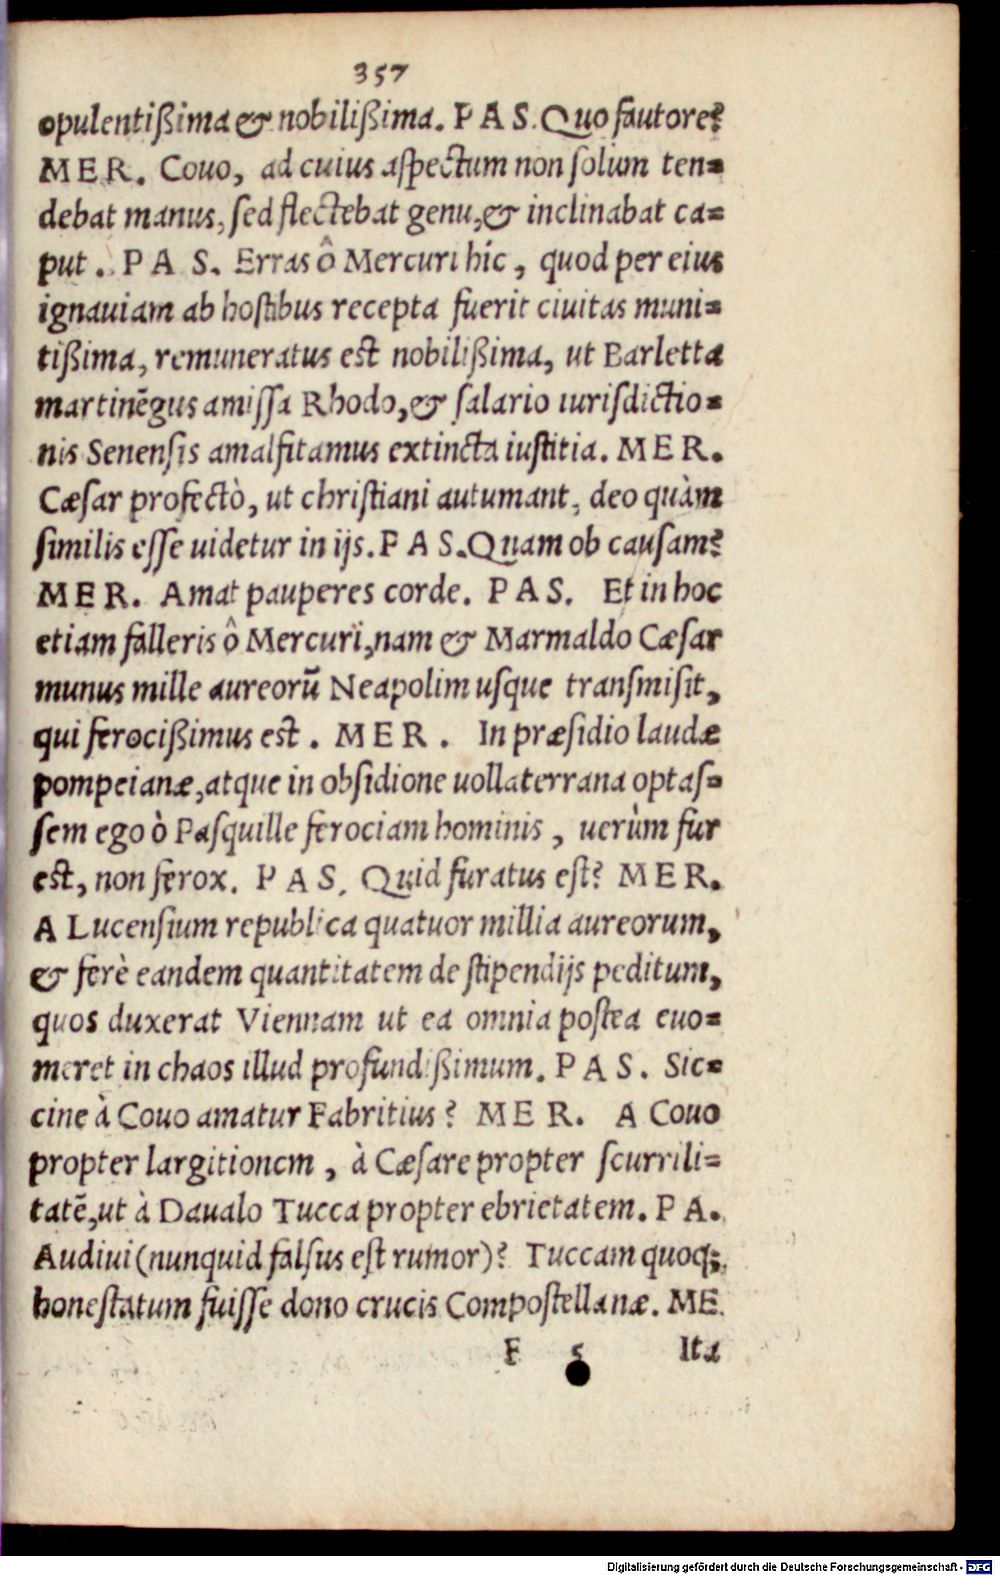 357
opulentißima & nobilißima. P A S. Quo fautore?
M E R. Couo, ad cuius aſpectum non ſolum ten=
debat manus, ſed flectebat genu, & inclinabat ca=
put. P A S. Erras ô Mercuri hic, quod per eius
ignauiam ab hoſtibus recepta fuerit ciuitas muni=
tißima, remuneratus est nobilißima, ut Barletta
martinẽgus amiſſa Rhodo, & ſalario iurisdictio=
nis Senenſis amalfitamus extincta iuſtitia. M E R.
Cæſar profectò, ut chriſtiani autumant, deo quàm
ſimilis eſſe uidetur in ijs. P A S. Quam ob cauſam?
M E R. Amat pauperes corde. P A S. Et in hoc
etiam falleris ô Mercuri, nam & Marmaldo Cæſar
munus mille aureorũ Neapolim uſque tranſmiſit,
qui ferocißimus est. M E R. In præſidio laudæ
pompeianæ, atque in obſidione uollaterrana optaſ=
ſem ego ò Paſquille ferociam hominis, uerùm fur
est, non ferox. P A S. Quid furatus eſt? M E R.
A Lucenſium republica quatuor millia aureorum,
& ferè eandem quantitatem de ſtipendijs peditum,
quos duxerat Viennam ut ea omnia poſtea euo=
meret in chaos illud profundißimum. P A S. Sic=
cine à Couo amatur Fabritius? M E R. A Couo
propter largitionem, à Cæſare propter ſcurrili=
tatẽ, ut à Daualo Tucca propter ebrietatem. P A.
Audiui (nunquid falſus eſt rumor)? Tuccam quoq;
honeſtatum fuiſſe dono crucis Compoſtellanæ. ME.
F 5 Ita
Digitalisierung gefördert durch die Deutsche Forschungsgemeinschaft - DFG